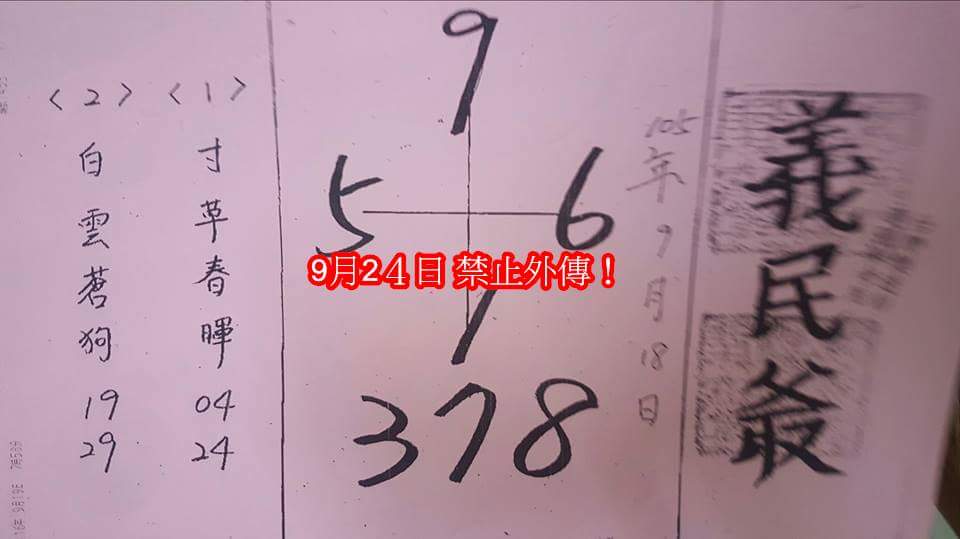 義民爺
105年9月18日
9
5 6
1
378
9月24日 禁止外傳！
〈1〉
寸草春暉
04
24
〈2〉
白雲蒼狗
19
29